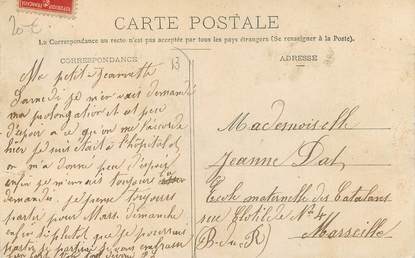 CARTE POSTALE
La Correspondance au recto n'est pas acceptée par tous les pays étrangers (Se renseigner à la Poste).
CORRESPONDANCE
ADRESSE
20 €
13
Ma petite Jeannette
Samedi je m'en vais demandé
ma prolongation et et peu
d'espoir a ce qu'on me l'accorde
hier je suis était à l'hôpital et
on m'a donné peu d'espoir
enfin je m'en vais toujours
demandé. je pense toujours
partir pour Mars. dimanche
enfin si plutot que je pourrais
partir je partirai
Mademoiselle
Jeanne
Ecole maternelle des Catalans
rue Clotilde N° 4
(B. du R)
Marseille